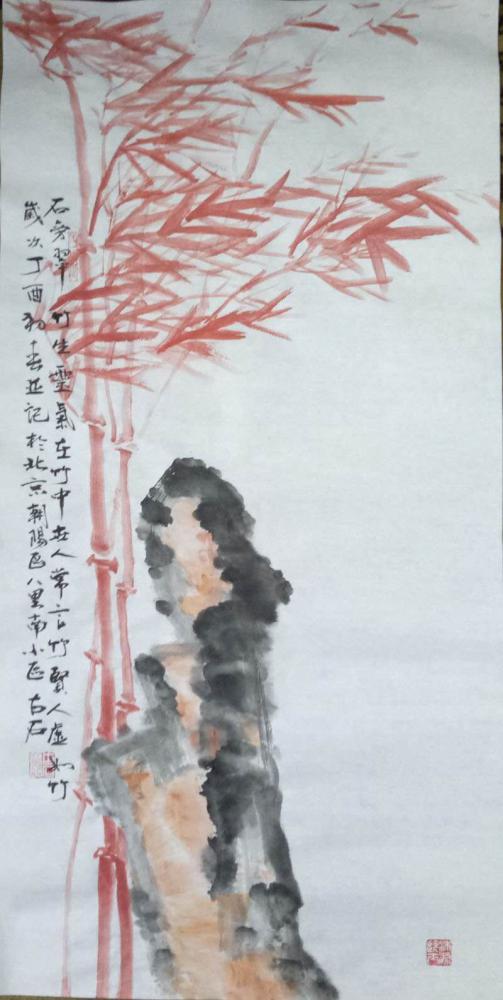 石旁翠竹生灵氣在竹中世人常言竹賢人虚如竹
歲次丁酉初春並記於北京朝陽區八里南小區古石